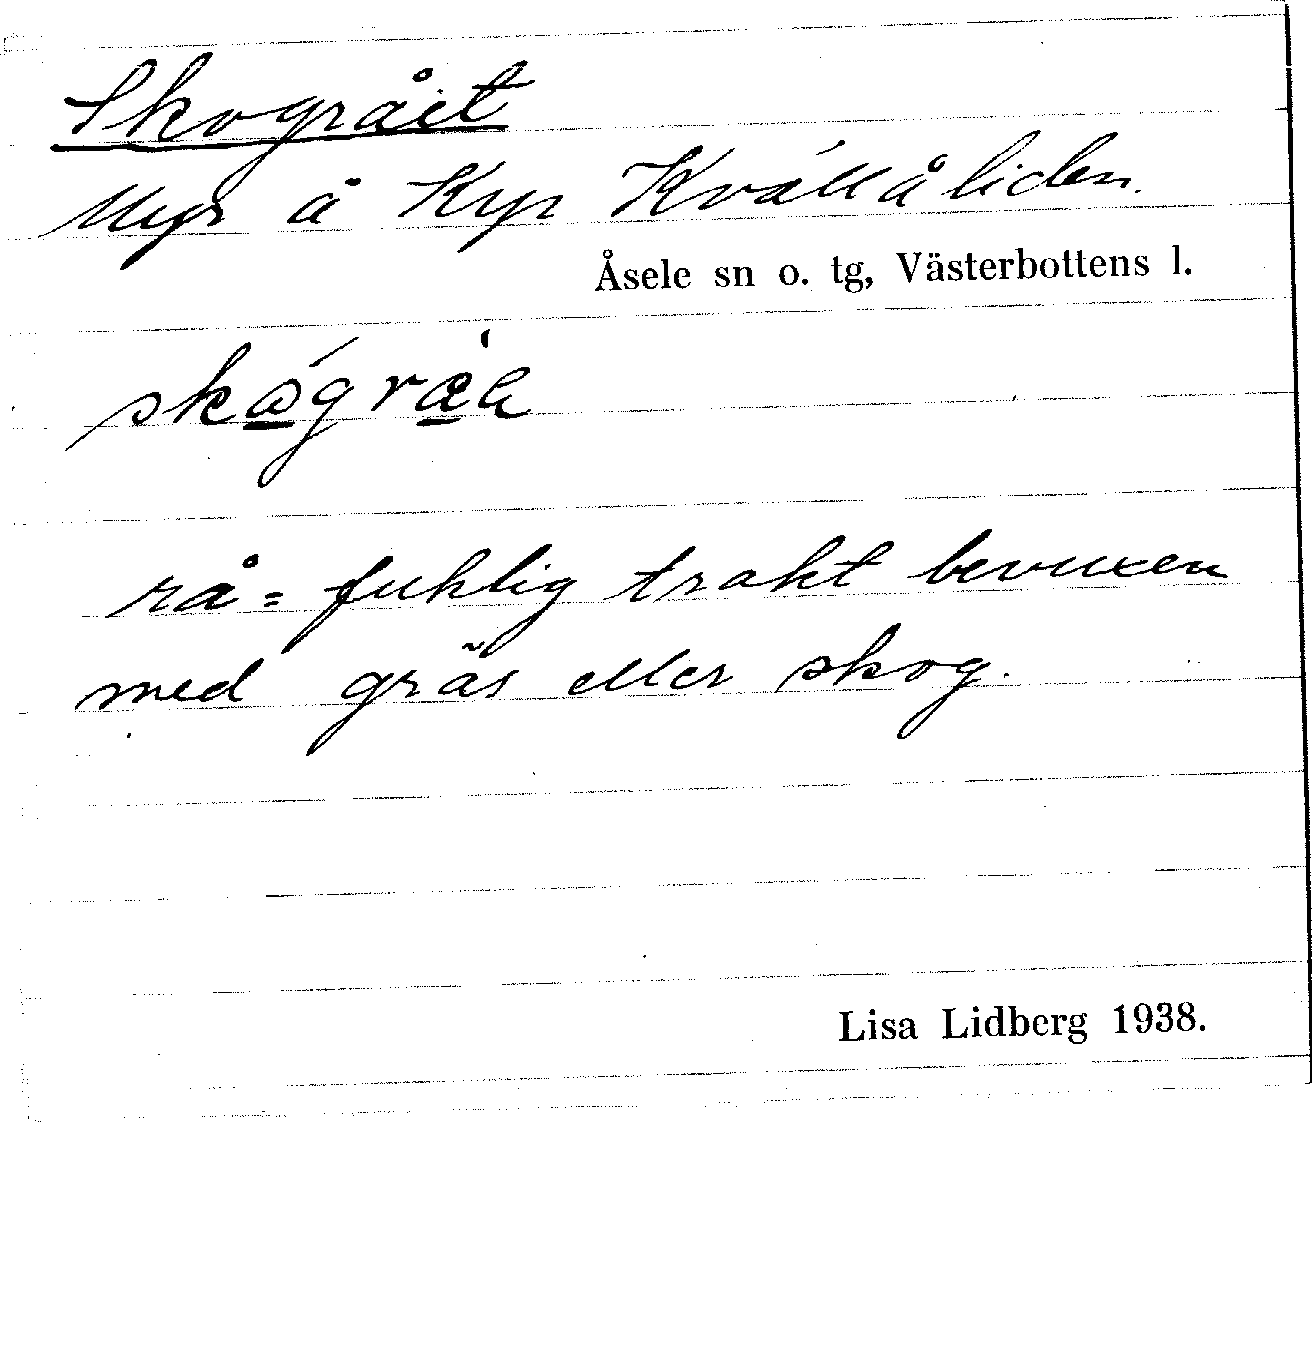 Skogrået
Myr å Kyp Kvällåliden.
Åsele sn o. tg, Västerbottens l.
rå = fuktig trakt bevuxen
med gräs eller skog.
Lisa Lidberg 1938.